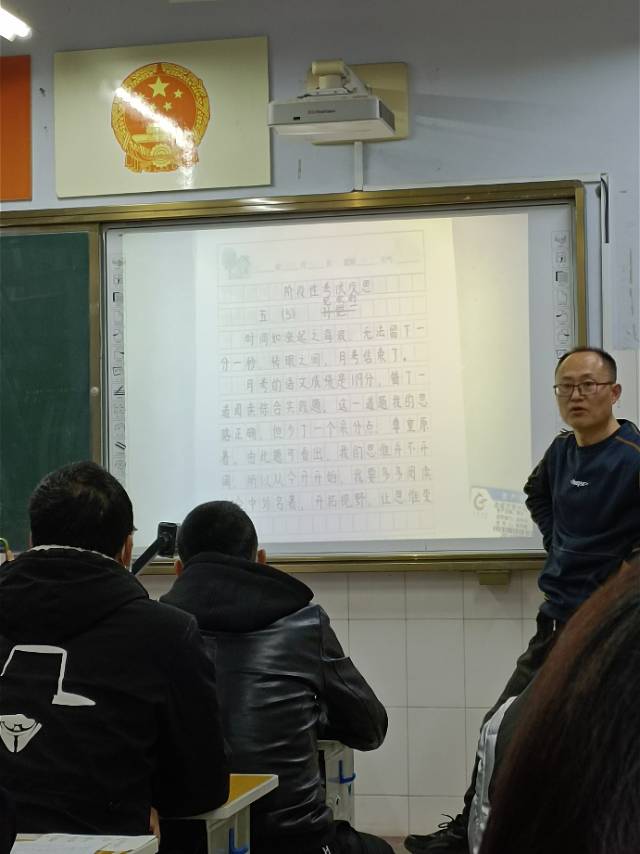 阶段性考试反思
五 (5)
时间如坐起之海浪，无法留下一
分一秒，转眼之间，月考结束了。
月考的语文成绩是119分，错了一
道阅读综合实践题，这一道题我的思
路正确，但少了一个采分点：尊重原
著，由此题可看出，我的思维并不开
阔，所以从今开始，我要多多阅读
中外名著，开拓视野，让思维变